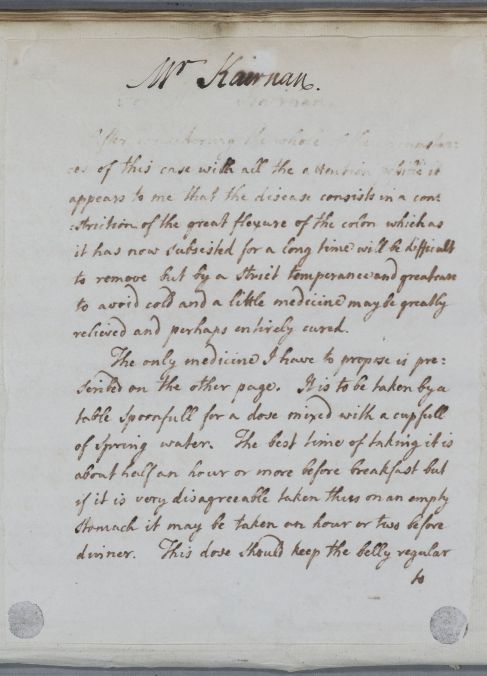 Mr Kairnan.
After considering the whole of the circumstan:
ces of this case with all the attention possible it
appears to me that the disease consists in a con
:striction of the great flexure of the colon which as
it has now subsisted for a long time will be difficult
to remove but by a strict temperance and great care
to avoid cold and a little medicine may be greatly
relieved and perhaps entirely cured.
The only medicine I have to propose is pre:
scribed on the other page. It is to be taken by a
table spoonfull for a dose mixed with a cupfull
of spring water. The best time of taking it is
about half an hour or more before breakfast but
if it is very disagreeable taken thus on an empty
stomach it may be taken an hour or two before
dinner. This dose should keep the belly regular
to